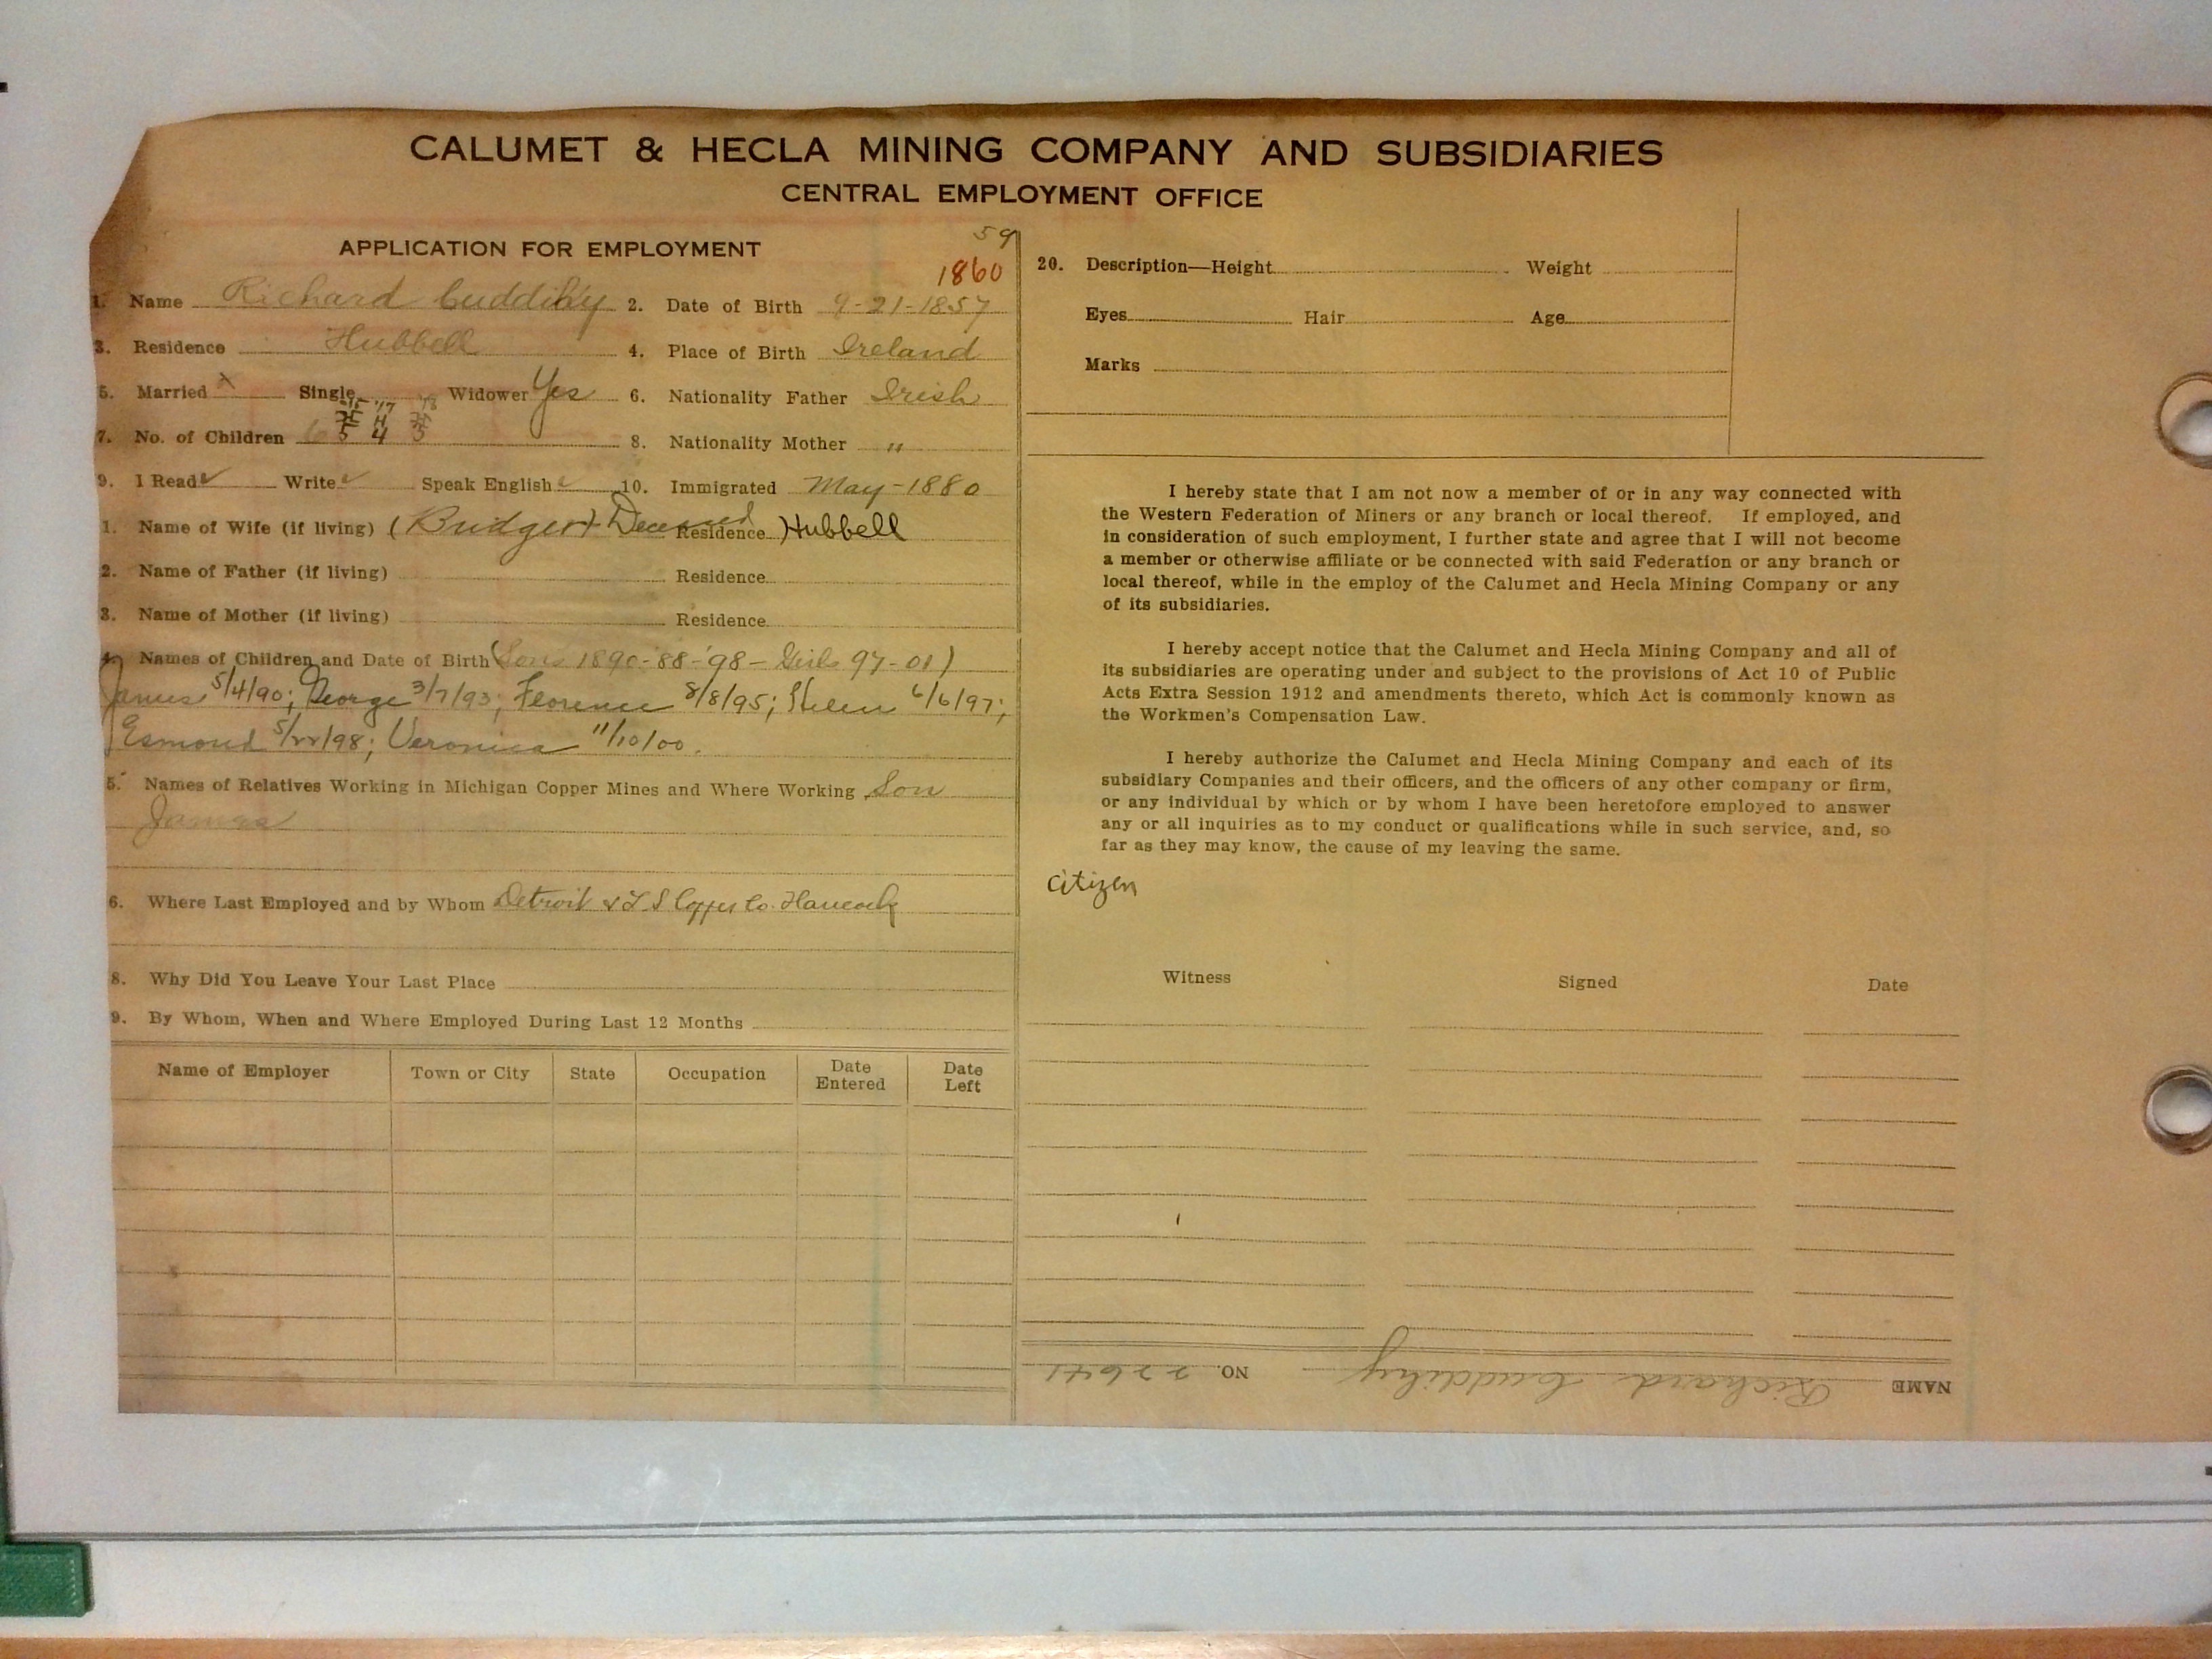 CALUMET & HECLA MINING COMPANY AND SUBSIDIARIES
CENTRAL EMPLOYMENT OFFICE
APPLICATION FOR EMPLOYMENT
59
1860
1. Name Richard Cuddihy 2. Date of Birth 9-21-1857
3. Residence Hubbell 4. Place of Birth Ireland
5. Married x Single Widower Yes 6. Nationality Father Irish
'17 '18
7. No. of Children 6 5 4 3 8. Nationality Mother "
9. I Read ✓ Write ✓ Speak English ✓ 10. Immigrated May-1880
1. Name of Wife (if living) (Bridget) Deceased Residence Hubbell
2. Name of Father (if living) Residence
3. Name of Mother (if living) Residence
4. Names of Children and Date of Birth (Sons 1890-88-'98- Girls 97-01)
James 5/4/90; George 3/7/93; Florence 8/8/95; Helen 6/6/97;
Esmond 5/22/98; Veronica 11/10/00.
5. Names of Relatives Working in Michigan Copper Mines and Where Working Son
James
6. Where Last Employed and by Whom Detroit & L S Copper Co. Hancock
8. Why Did You Leave Your Last Place
9. By Whom, When and Where Employed During Last 12 Months
Name of Employer Town or City State Occupation Date Entered Date Left
20. Description—Height Weight
Eyes Hair Age
Marks
I hereby state that I am not now a member of or in any way connected with
the Western Federation of Miners or any branch or local thereof. If employed, and
in consideration of such employment, I further state and agree that I will not become
a member or otherwise affiliate or be connected with said Federation or any branch or
local thereof, while in the employ of the Calumet and Hecla Mining Company or any
of its subsidiaries.
I hereby accept notice that the Calumet and Hecla Mining Company and all of
its subsidiaries are operating under and subject to the provisions of Act 10 of Public
Acts Extra Session 1912 and amendments thereto, which Act is commonly known as
the Workmen's Compensation Law.
I hereby authorize the Calumet and Hecla Mining Company and each of its
subsidiary Companies and their officers, and the officers of any other company or firm,
or any individual by which or by whom I have been heretofore employed to answer
any or all inquiries as to my conduct or qualifications while in such service, and, so
far as they may know, the cause of my leaving the same.
Citizen
Witness Signed Date
NAME Richard Cuddihy NO. 22641